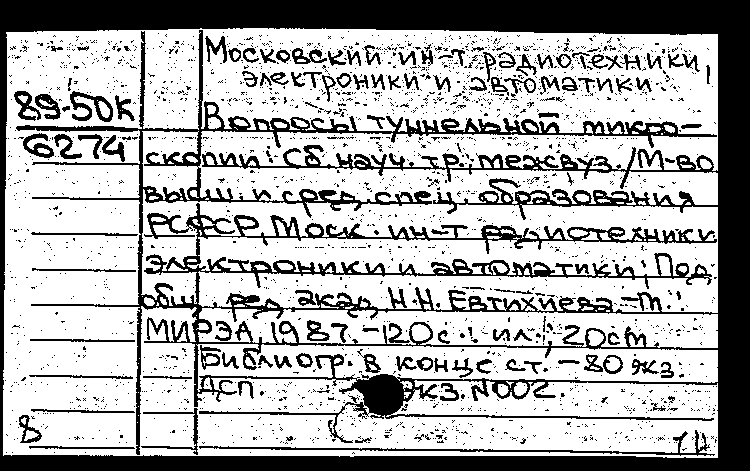 Московский ин-т радиотехники,
электроники и автоматики.
89-50к
6274
Вопросы туннельной микро-
скопии: Сб. науч. тр.; межвуз. / М-во
высш. и сред. спец. образования
РСФСР, Моск. ин-т радиотехники
электроники и автоматики; Под
общ. ред. акад. Н.Н. Евтихиева. -М.:
МИРЭА, 1987. -120с.: ил.; 20см.
Библиогр. в конце ст. - 80 экз.
ДСП. Экз. N002.
8